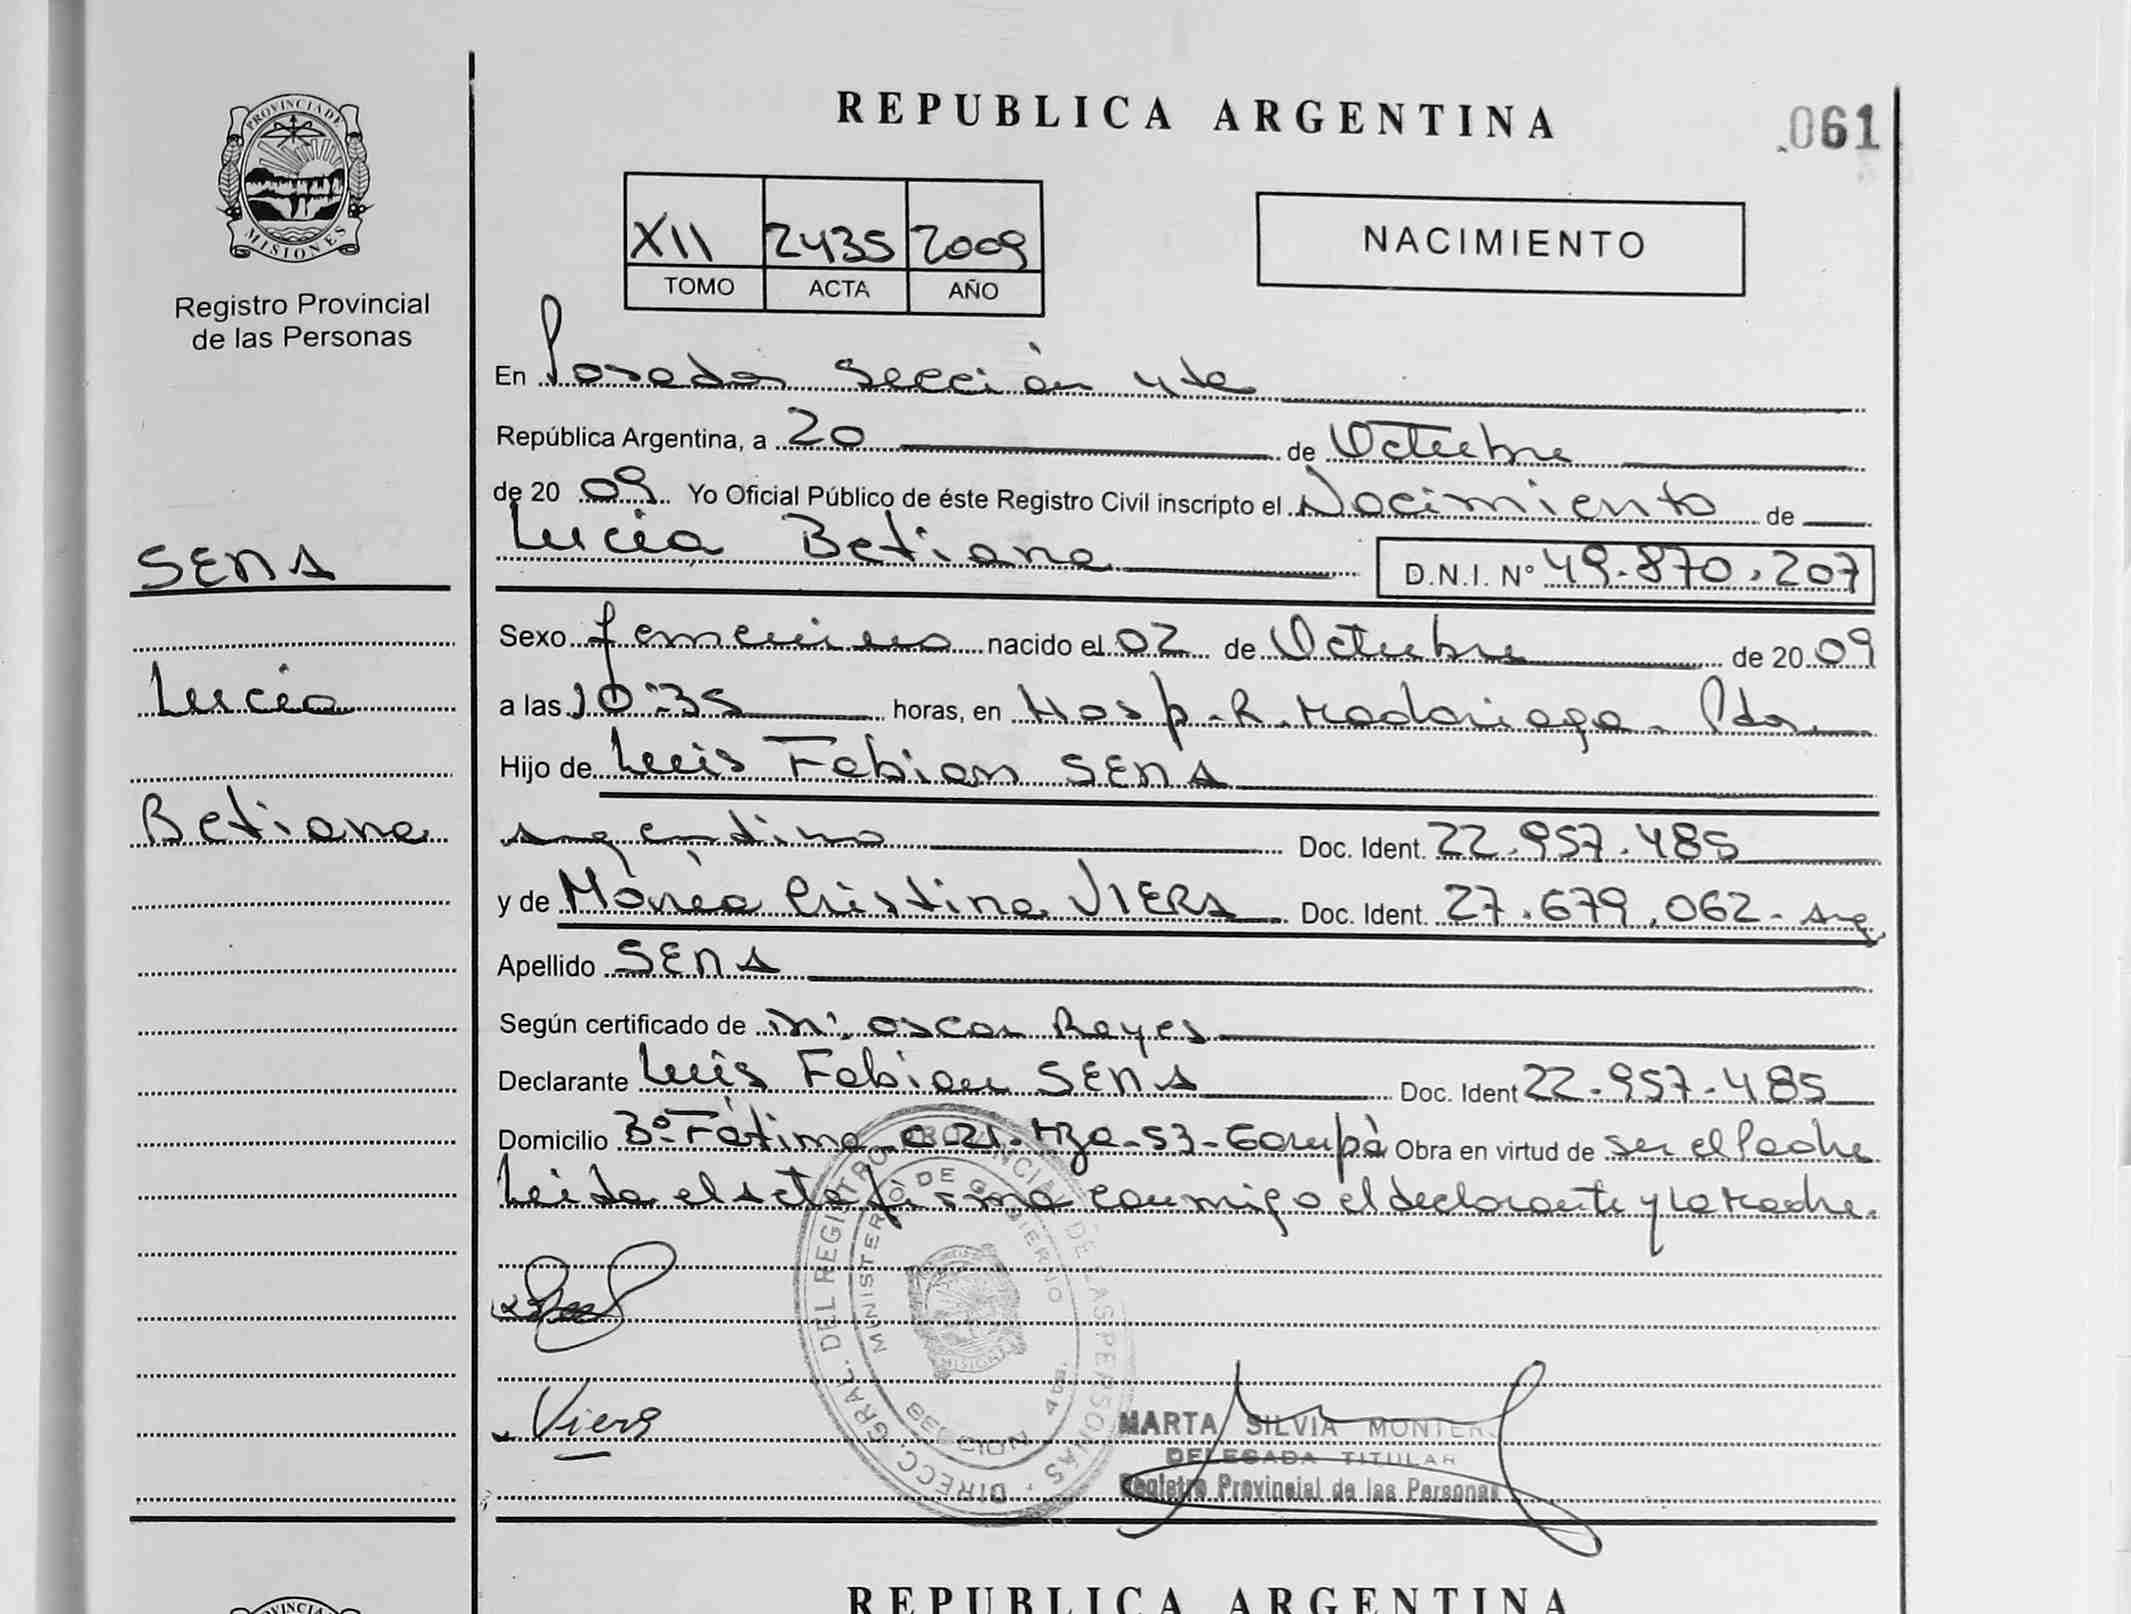 REPUBLICA ARGENTINA
.061
PROVINCIA DE
MISIONES
Registro Provincial
de las Personas
XII 2435 2009
TOMO ACTA AÑO
NACIMIENTO
En Posadas Sección 4ta
República Argentina, a 20 de Octubre
de 20 09 Yo Oficial Público de éste Registro Civil inscripto el Nacimiento de
Lucia Betiana D.N.I. Nº 49.870.207
SENS
Lucia
Betiana
Sexo femenino nacido el 02 de Octubre de 20 09
a las 10:35 horas, en Hosp. R. Madariaga - Pdas.
Hijo de Luis Fabian SENS
Argentino Doc. Ident. 22.957.485
y de Mónica Cristina VIERA Doc. Ident. 27.679.062 - Arg
Apellido SENS
Según certificado de Oscar Reyes
Declarante Luis Fabian SENS Doc. Ident 22.957.485
Domicilio Bº Fátima C 21 - Mza - 53 - Garupá Obra en virtud de ser el Padre
Leida el acta firma conmigo el declarante y la Madre.
DIRECC. GRAL. DEL REGISTRO PROVINCIAL DE LAS PERSONAS
MINISTERIO DE GOBIERNO
MISIONES
SECCION 4ta.
Viera
MARTA SILVIA
DELEGADA TITULAR
Registro Provincial de las Personas
REPUBLICA ARGENTINA